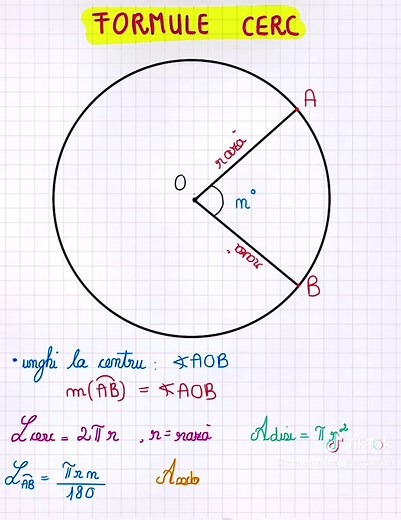 FORMULE CERC
A
rază
O
n°
rază
B
• unghi la centru: ∢AOB
m(AB) = ∢AOB
Lcerc = 2πr , r = rază
Adisc = πr²
L AB = πrn / 180